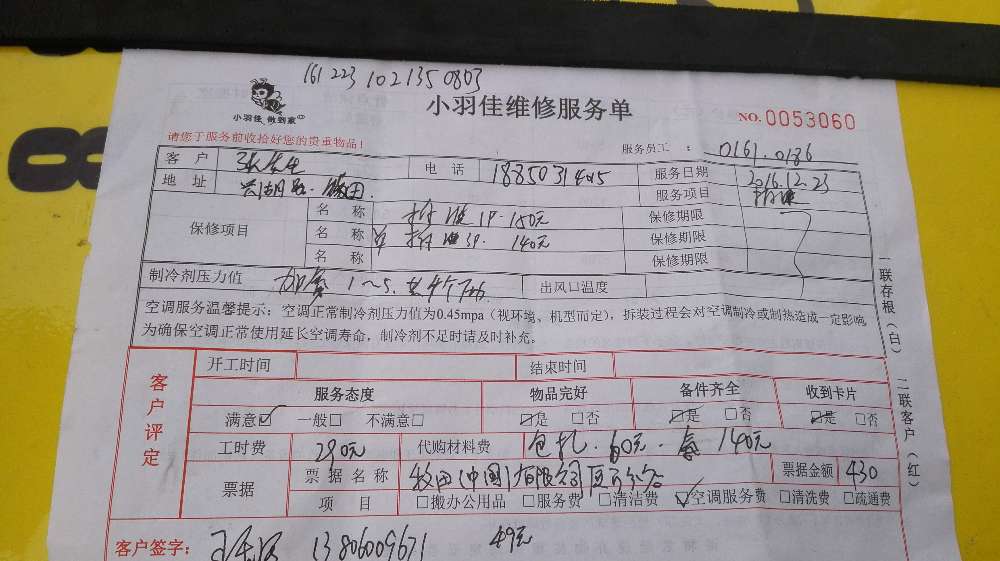 161 223 102135 0803
小羽佳 做到家
小羽佳维修服务单
NO.0053060
请您于服务前收拾好您的贵重物品！
服务员工 ： 0161.0186
客 户 张先生 电 话 服务日期 2016.12.23
地 址 服务项目 拆装
保修项目 名 称 拆装1P·150元 保修期限
名 称 拆装3P. 140元 保修期限
名 称 保修期限
制冷剂压力值 出风口温度
空调服务温馨提示：空调正常制冷剂压力值为0.45mpa（视环境、机型而定），拆装过程会对空调制冷或制热造成一定影响
为确保空调正常使用延长空调寿命，制冷剂不足时请及时补充。
一联存根（白） 二联客户（红）
客户评定
开工时间 结束时间
服务态度 物品完好 备件齐全 收到卡片
满意☑ 一般□ 不满意□ ☑是 □否 ☑是 □否 ☑是 □否
工时费 290元 代购材料费 包扎.60元. 140元
票据 票据名称 牧田(中国)有限公司厦门分公司 票据金额 430
项 目 □搬办公用品 □服务费 □清洁费 ☑空调服务费 □清洗费 □疏通费
客户签字： 13806009671 49元